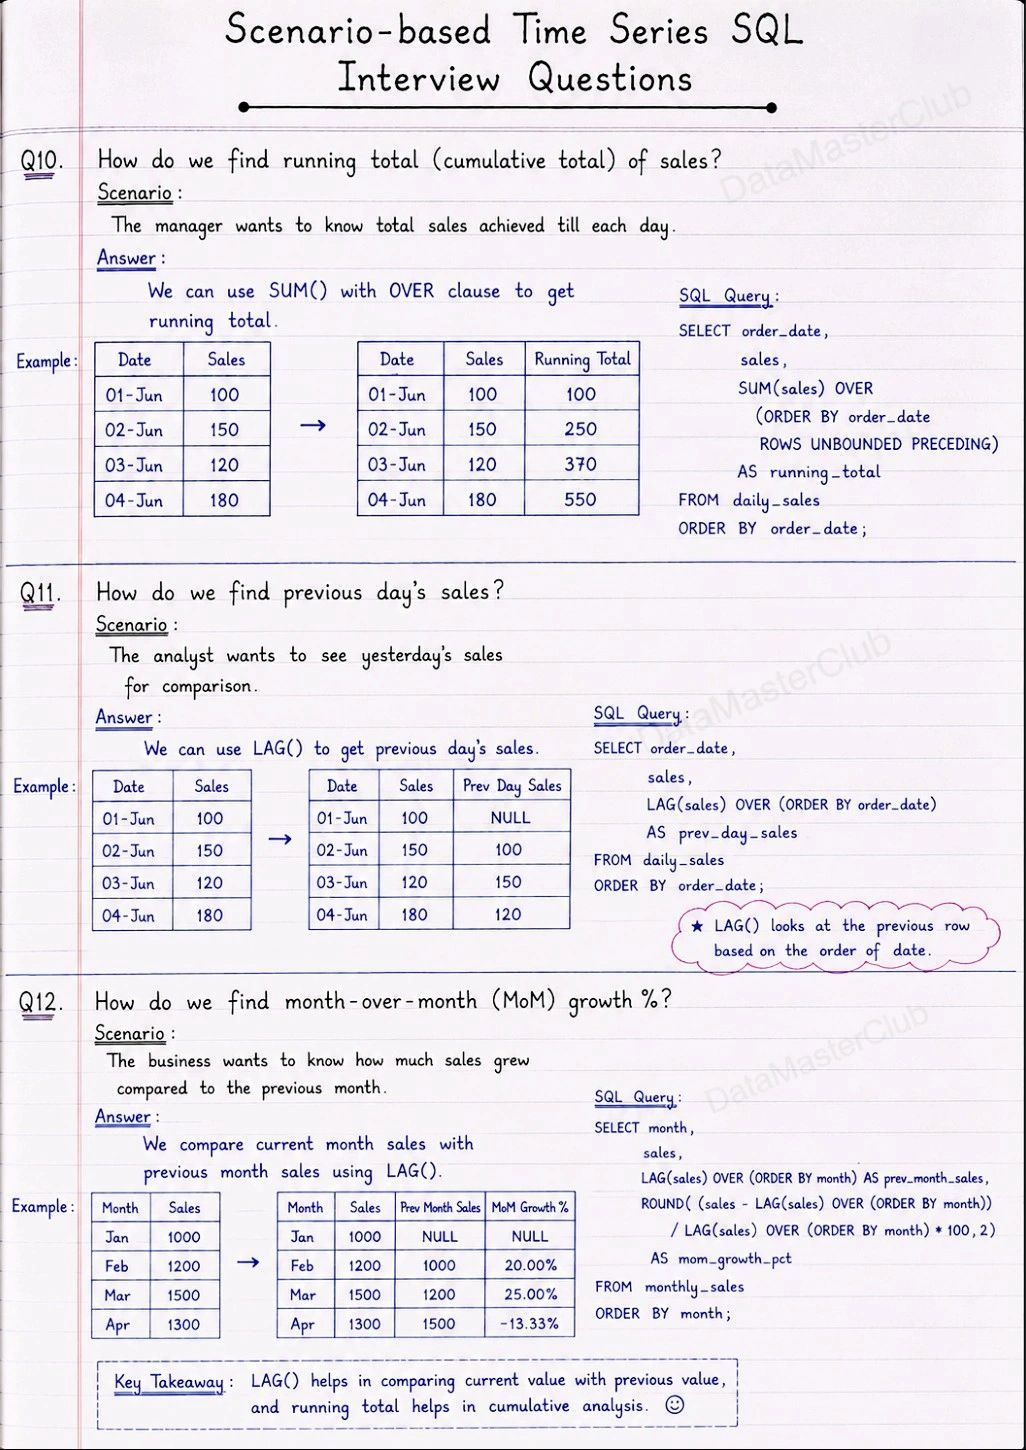 Scenario-based Time Series SQL
Interview Questions
DataMasterClub
Q10. How do we find running total (cumulative total) of sales?
Scenario :
The manager wants to know total sales achieved till each day.
Answer :
We can use SUM() with OVER clause to get
running total.
Example :
Date Sales
01-Jun 100
02-Jun 150
03-Jun 120
04-Jun 180
→
Date Sales Running Total
01-Jun 100 100
02-Jun 150 250
03-Jun 120 370
04-Jun 180 550
SQL Query :
SELECT order_date,
sales,
SUM(sales) OVER
(ORDER BY order_date
ROWS UNBOUNDED PRECEDING)
AS running_total
FROM daily_sales
ORDER BY order_date;
Q11. How do we find previous day's sales?
Scenario :
The analyst wants to see yesterday's sales
for comparison.
Answer :
We can use LAG() to get previous day's sales.
Example :
Date Sales
01-Jun 100
02-Jun 150
03-Jun 120
04-Jun 180
→
Date Sales Prev Day Sales
01-Jun 100 NULL
02-Jun 150 100
03-Jun 120 150
04-Jun 180 120
DataMasterClub
SQL Query :
SELECT order_date,
sales,
LAG(sales) OVER (ORDER BY order_date)
AS prev_day_sales
FROM daily_sales
ORDER BY order_date;
★ LAG() looks at the previous row
based on the order of date.
Q12. How do we find month-over-month (MoM) growth %?
Scenario :
The business wants to know how much sales grew
compared to the previous month.
Answer :
We compare current month sales with
previous month sales using LAG().
Example :
Month Sales
Jan 1000
Feb 1200
Mar 1500
Apr 1300
→
Month Sales Prev Month Sales MoM Growth %
Jan 1000 NULL NULL
Feb 1200 1000 20.00%
Mar 1500 1200 25.00%
Apr 1300 1500 -13.33%
DataMasterClub
SQL Query :
SELECT month,
sales,
LAG(sales) OVER (ORDER BY month) AS prev_month_sales,
ROUND( (sales - LAG(sales) OVER (ORDER BY month))
/ LAG(sales) OVER (ORDER BY month) * 100, 2)
AS mom_growth_pct
FROM monthly_sales
ORDER BY month;
Key Takeaway : LAG() helps in comparing current value with previous value,
and running total helps in cumulative analysis. ☺